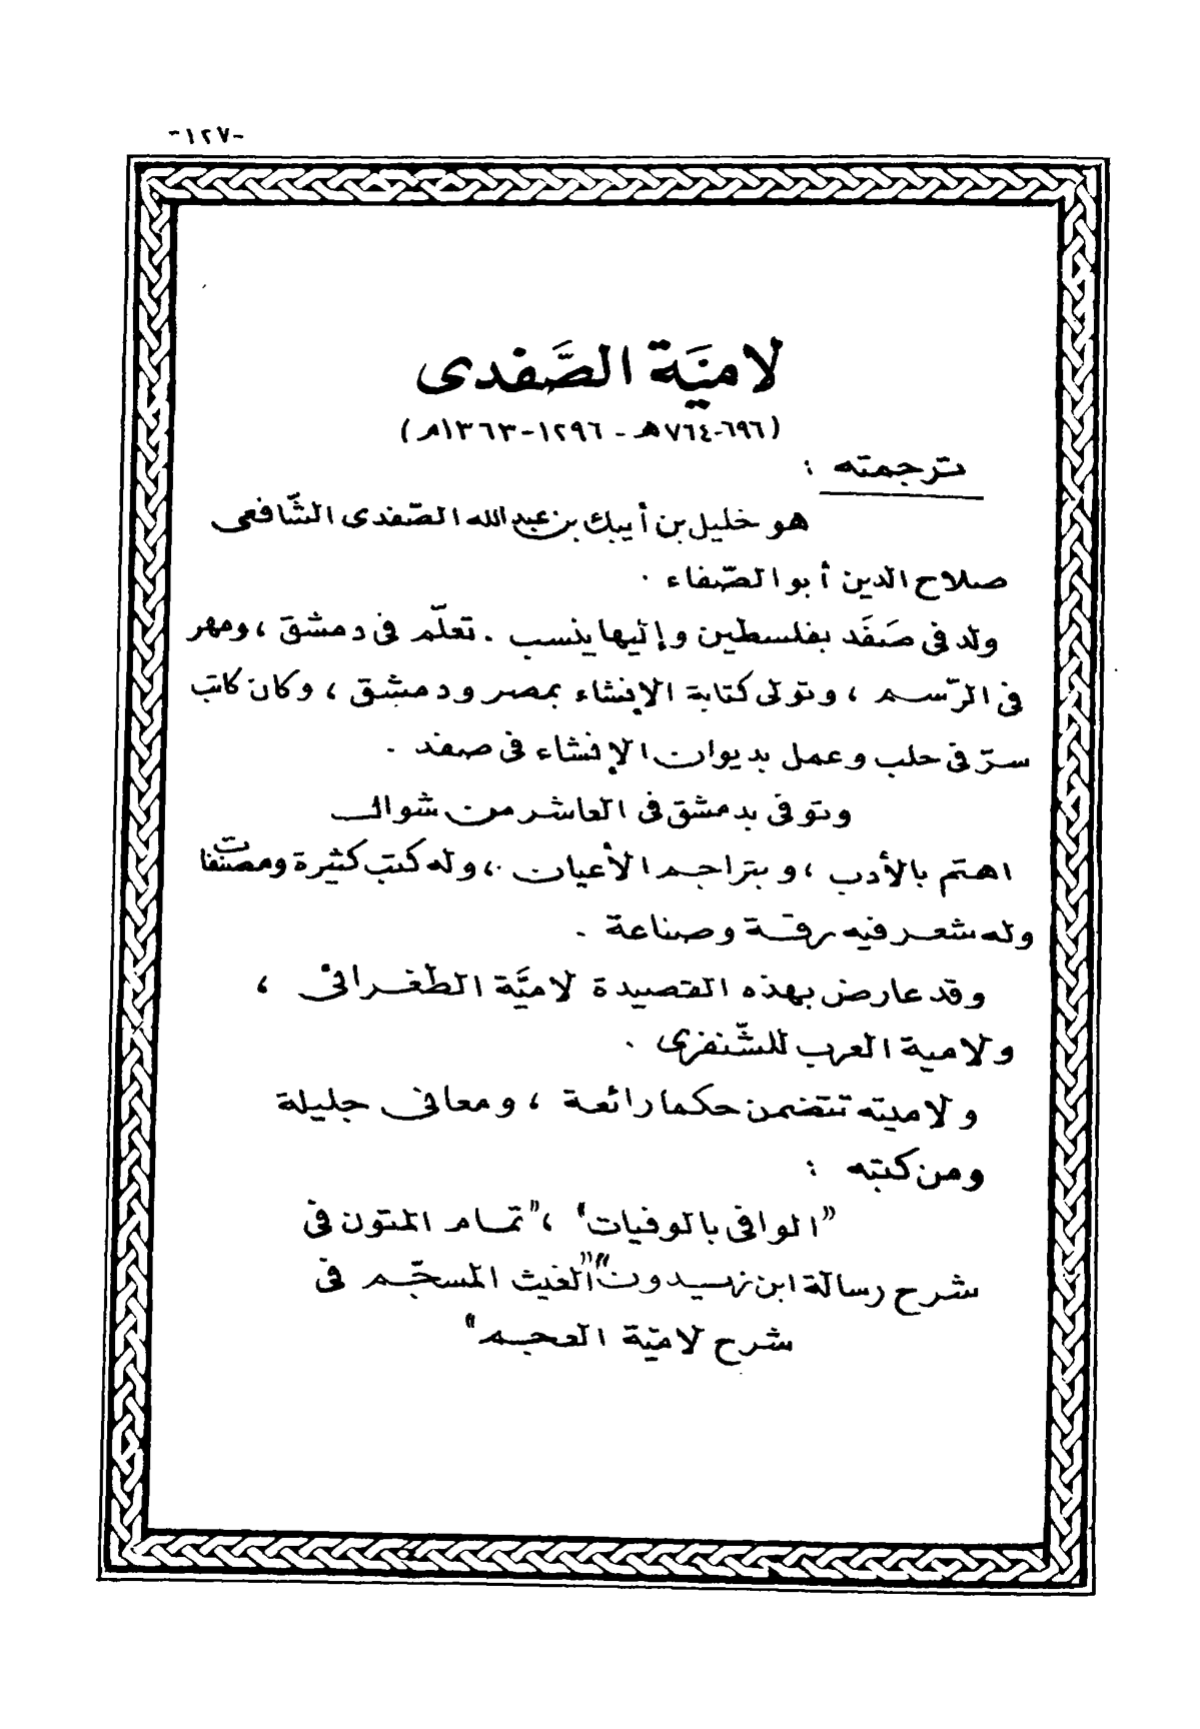 -١٢٧-
لاميَّة الصَّفدى
(٦٩٦-٧٦٤هـ - ١٢٩٦-١٣٦٣م)
ترجمته :
هو خليل بن أيبك بن عبد الله الصّفدى الشّافعى
صلاح الدين أبو الصّفاء .
ولد فى صَفَد بفلسطين وإليها ينسب . تعلّم فى دمشق ، ومهر
فى الرّسم ، وتولى كتابة الإنشاء بمصر ودمشق ، وكان كاتب
سرّ فى حلب وعمل بديوان الإنشاء فى صفد .
وتوفى بدمشق فى العاشر من شوال
اهتم بالأدب ، وبتراجم الأعيان ، وله كتب كثيرة ومصنّفات
وله شعر فيه رقة وصناعة .
وقد عارض بهذه القصيدة لاميَّة الطّغرائى ،
ولامية العرب للشّنفرى .
ولاميته تتضمن حكما رائعة ، ومعانى جليلة
ومن كتبه :
"الوافى بالوفيات" ، "تمام المتون فى
شرح رسالة ابن زيدون" "الغيث المسجّم فى
شرح لاميّة العجم"